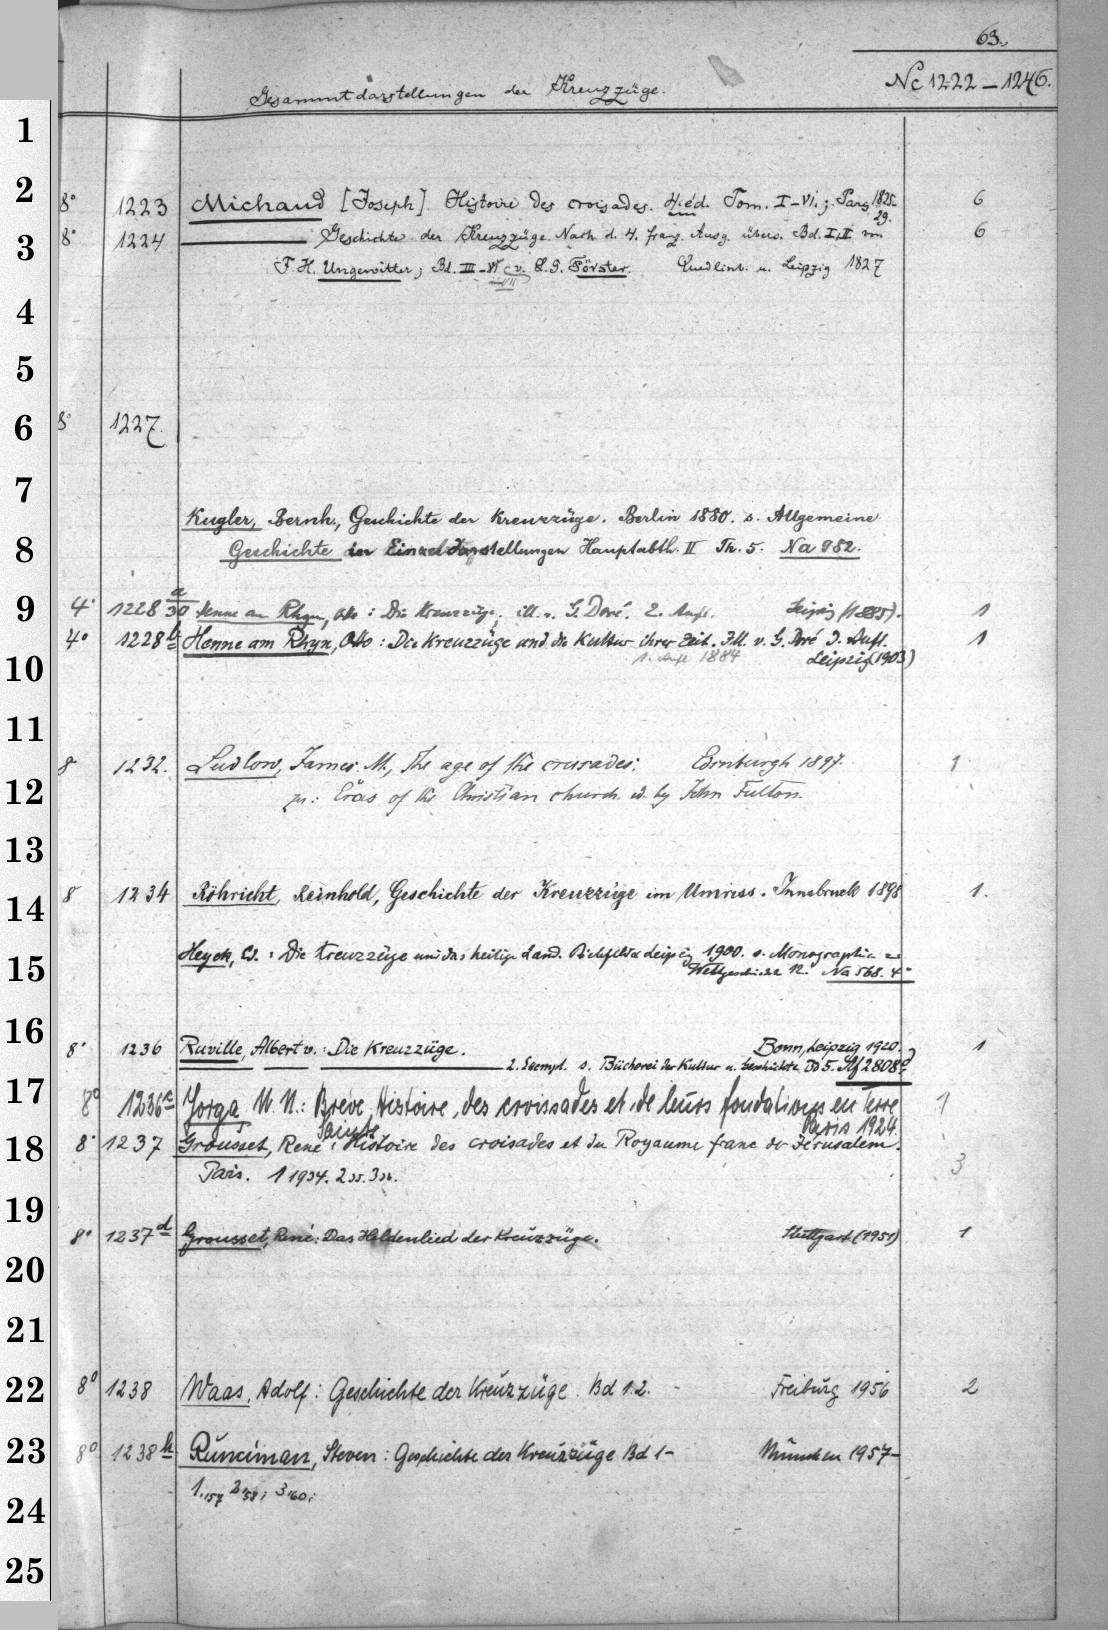 63.
Gesammtdarstellungen der Kreuzzüge.
Nc 1222 – 1246.
1
2
8° 1223 Michaud [Joseph]. Histoire des croisades. 4. éd. Tom. I–VI.; Paris 1825-29. 6
3
8° 1224 ——— Geschichte der Kreuzzüge. Nach d. 4. franz. Ausg. übers. Bd. I, II von 6
F. H. Ungewitter; Bd. III–VI v. L. G. Förster. Quedlinb. u. Leipzig 1827
4
5
6
8° 1227.
7
Kugler, Bernh., Geschichte der Kreuzzüge. Berlin 1880. s. Allgemeine
8
Geschichte in Einzeldarstellungen Hauptabth. II Th. 5. Na 982.
9
4° 1228 a/30 Henne am Rhyn, Otto: Die Kreuzzüge, ill. v. G. Doré. 2. Aufl. Leipzig 1
4° 1228 b Henne am Rhyn, Otto: Die Kreuzzüge und die Kultur ihrer Zeit. Ill. v. G. Doré 3. Aufl. 1
10
1. Aufl. 1884 Leipzig (1903)
11
8° 1232. Ludlow, James. M., The age of the crusades. Edinburgh 1897. 1
12
in: Eras of the Christian church. ed. by John Fulton.
13
8° 1234 Röhricht, Reinhold, Geschichte der Kreuzzüge im Umriss. Innsbruck 1898 1.
14
Heyck, Ed.: Die Kreuzzüge und das heilige Land. Bielefeld u Leipzig 1900. s. Monographien z.
15
Weltgeschichte 12. Na 568. 4°
16
8° 1236 Ruville, Albert v.: Die Kreuzzüge. Bonn, Leipzig 1920. 1
2. Exempl. s. Bücherei der Kultur u. Geschichte Bd 5. Af 2808 d
17
8° 1236 a Jorga, N.: Brève Histoire des croissades et de leurs fondations en Terre 1
Sainte Paris 1924.
18
8° 1237 Grousset, René: Histoire des croisades et du Royaume franc de Jérusalem. 3
Paris. 1 1934. 2 35. 3 36.
19
8° 1237 d Grousset, René: Das Heldenlied der Kreuzzüge. Stuttgart (1951) 1
20
21
22
8° 1238 Waas, Adolf: Geschichte der Kreuzzüge. Bd 1.2. - Freiburg 1956 2
23
8° 1238 h Runciman, Steven: Geschichte der Kreuzzüge Bd 1– München 1957–
1. '57 2 '58; 3 '60;
24
25